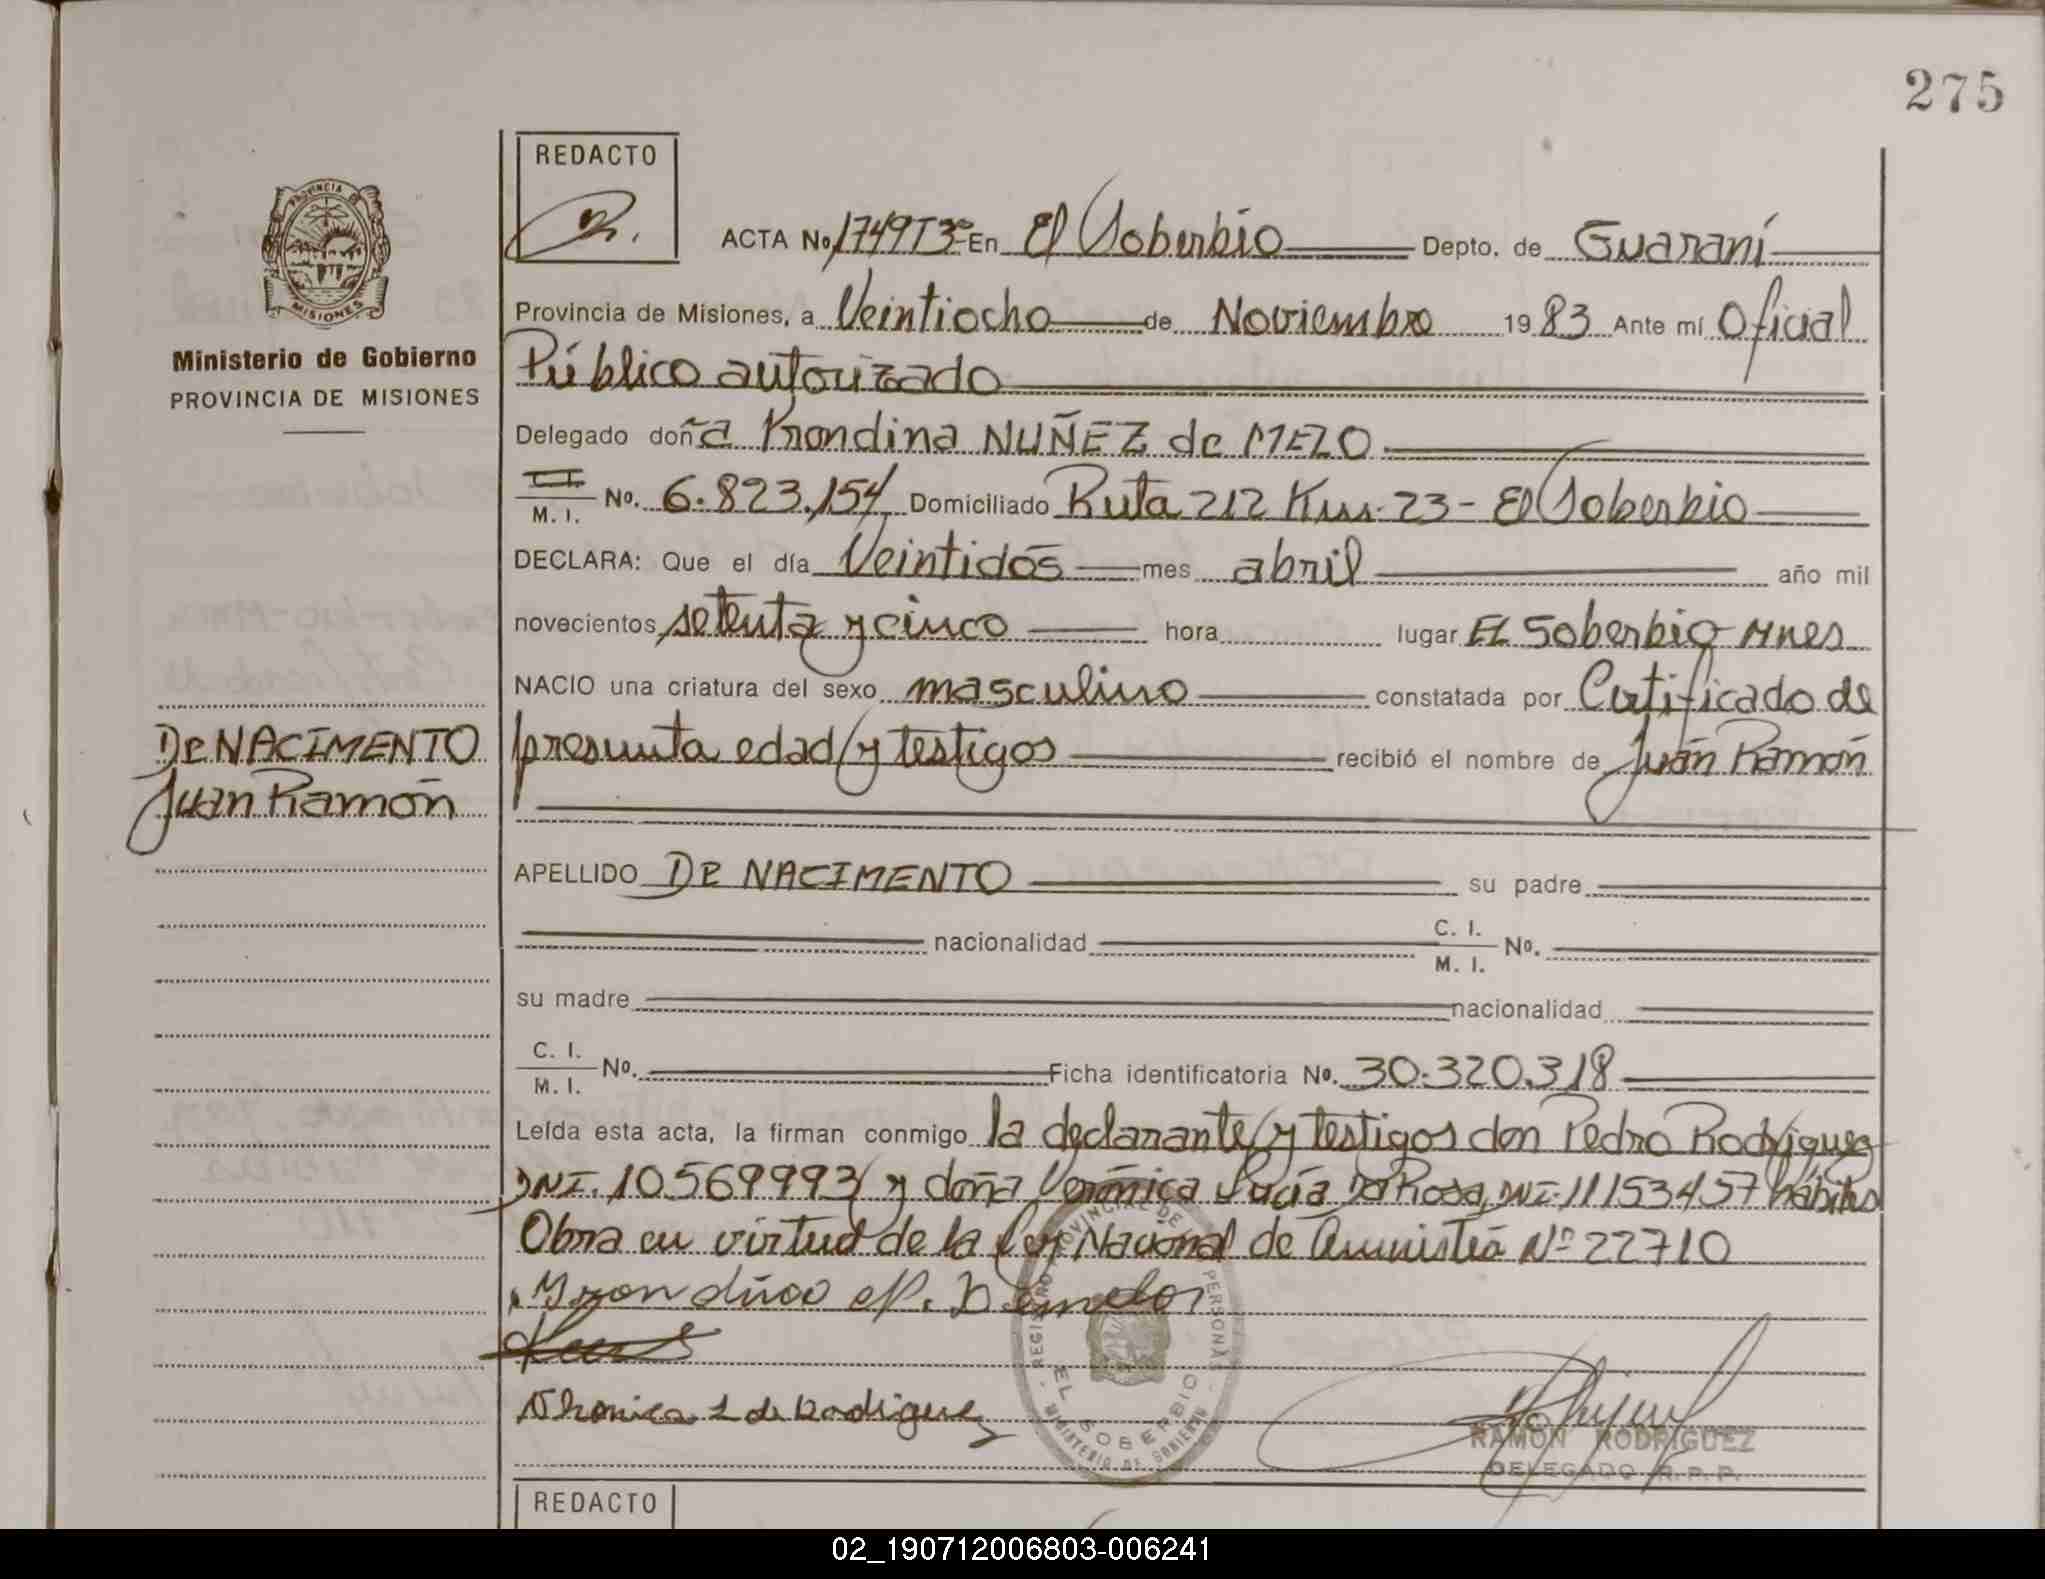 275
REDACTO
ACTA No. 1749T3º En El Soberbio Depto. de Guaraní
PROVINCIA DE
MISIONES
Provincia de Misiones, a Veintiocho de Noviembre 1983 Ante mí Oficial
Ministerio de Gobierno
PROVINCIA DE MISIONES
Público autorizado
Delegado doña Krondina NUÑEZ de MELO
C.I.
M. I. No. 6.823.154 Domiciliado Ruta 212 Km. 23 - El Soberbio
DECLARA: Que el día Veintidós mes abril año mil
novecientos setenta y cinco hora lugar EL Soberbio Mnes
NACIO una criatura del sexo masculino constatada por Certificado de
DE NACIMENTO
Juan Ramón
presunta edad y testigos recibió el nombre de Juán Ramón
APELLIDO DE NACIMENTO su padre
nacionalidad C. I.
M. I. No.
su madre nacionalidad
C. I.
M. I. No. Ficha identificatoria No. 30.320.318
Leída esta acta, la firman conmigo la declarante y testigos don Pedro Rodríguez
DNI. 10569993 y doña Verónica Lucía Da Rosa, DNI. 11153457 hábiles
Obra en virtud de la Ley Nacional de Amnistía Nº 22710
Veronica L de Rodriguez
REGISTRO PROVINCIAL DE LAS PERSONAS
EL SOBERBIO
MINISTERIO DE GOBIERNO
RAMON RODRIGUEZ
DELEGADO R.P.P.
REDACTO
02_190712006803-006241